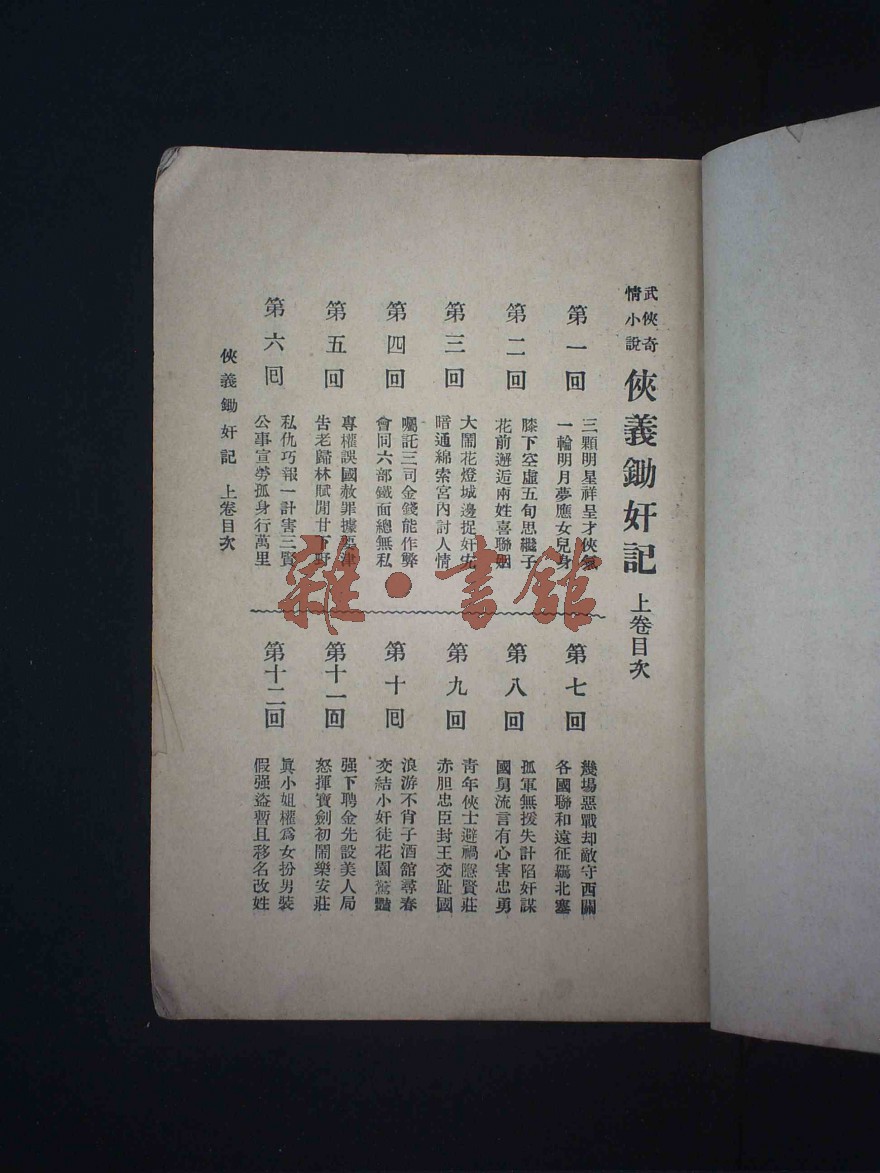 武俠奇
情小說
俠義鋤奸記 上卷目次
第一回
三顆明星祥呈才俠氣
一輪明月夢應女兒身
第二回
膝下空虛五旬思繼子
花前邂逅兩姓喜聯姻
第三回
大鬧花燈城邊捉奸
暗通綿索宮內討人情
第四回
囑託三司金錢能作弊
會同六部鐵面總無私
第五回
專權誤國赦罪據要津
告老歸林賦閒甘下野
第六回
私仇巧報一計害三賢
公事宣勞孤身行萬里
第七回
幾場惡戰却敵守西關
各國聯和遠征羈北塞
第八回
孤軍無援失計陷奸謀
國舅流言有心害忠勇
第九回
青年俠士避禍賢莊
赤胆忠臣封王交趾國
第十回
浪游不肖子酒館尋春
交結小奸徒花園驚豔
第十一回
强下聘金先設美人局
怒揮寶劍初鬧樂安莊
第十二回
眞小姐權爲女扮男裝
假强盜暫且移名改姓
俠義鋤奸記 上卷目次
雜·書館